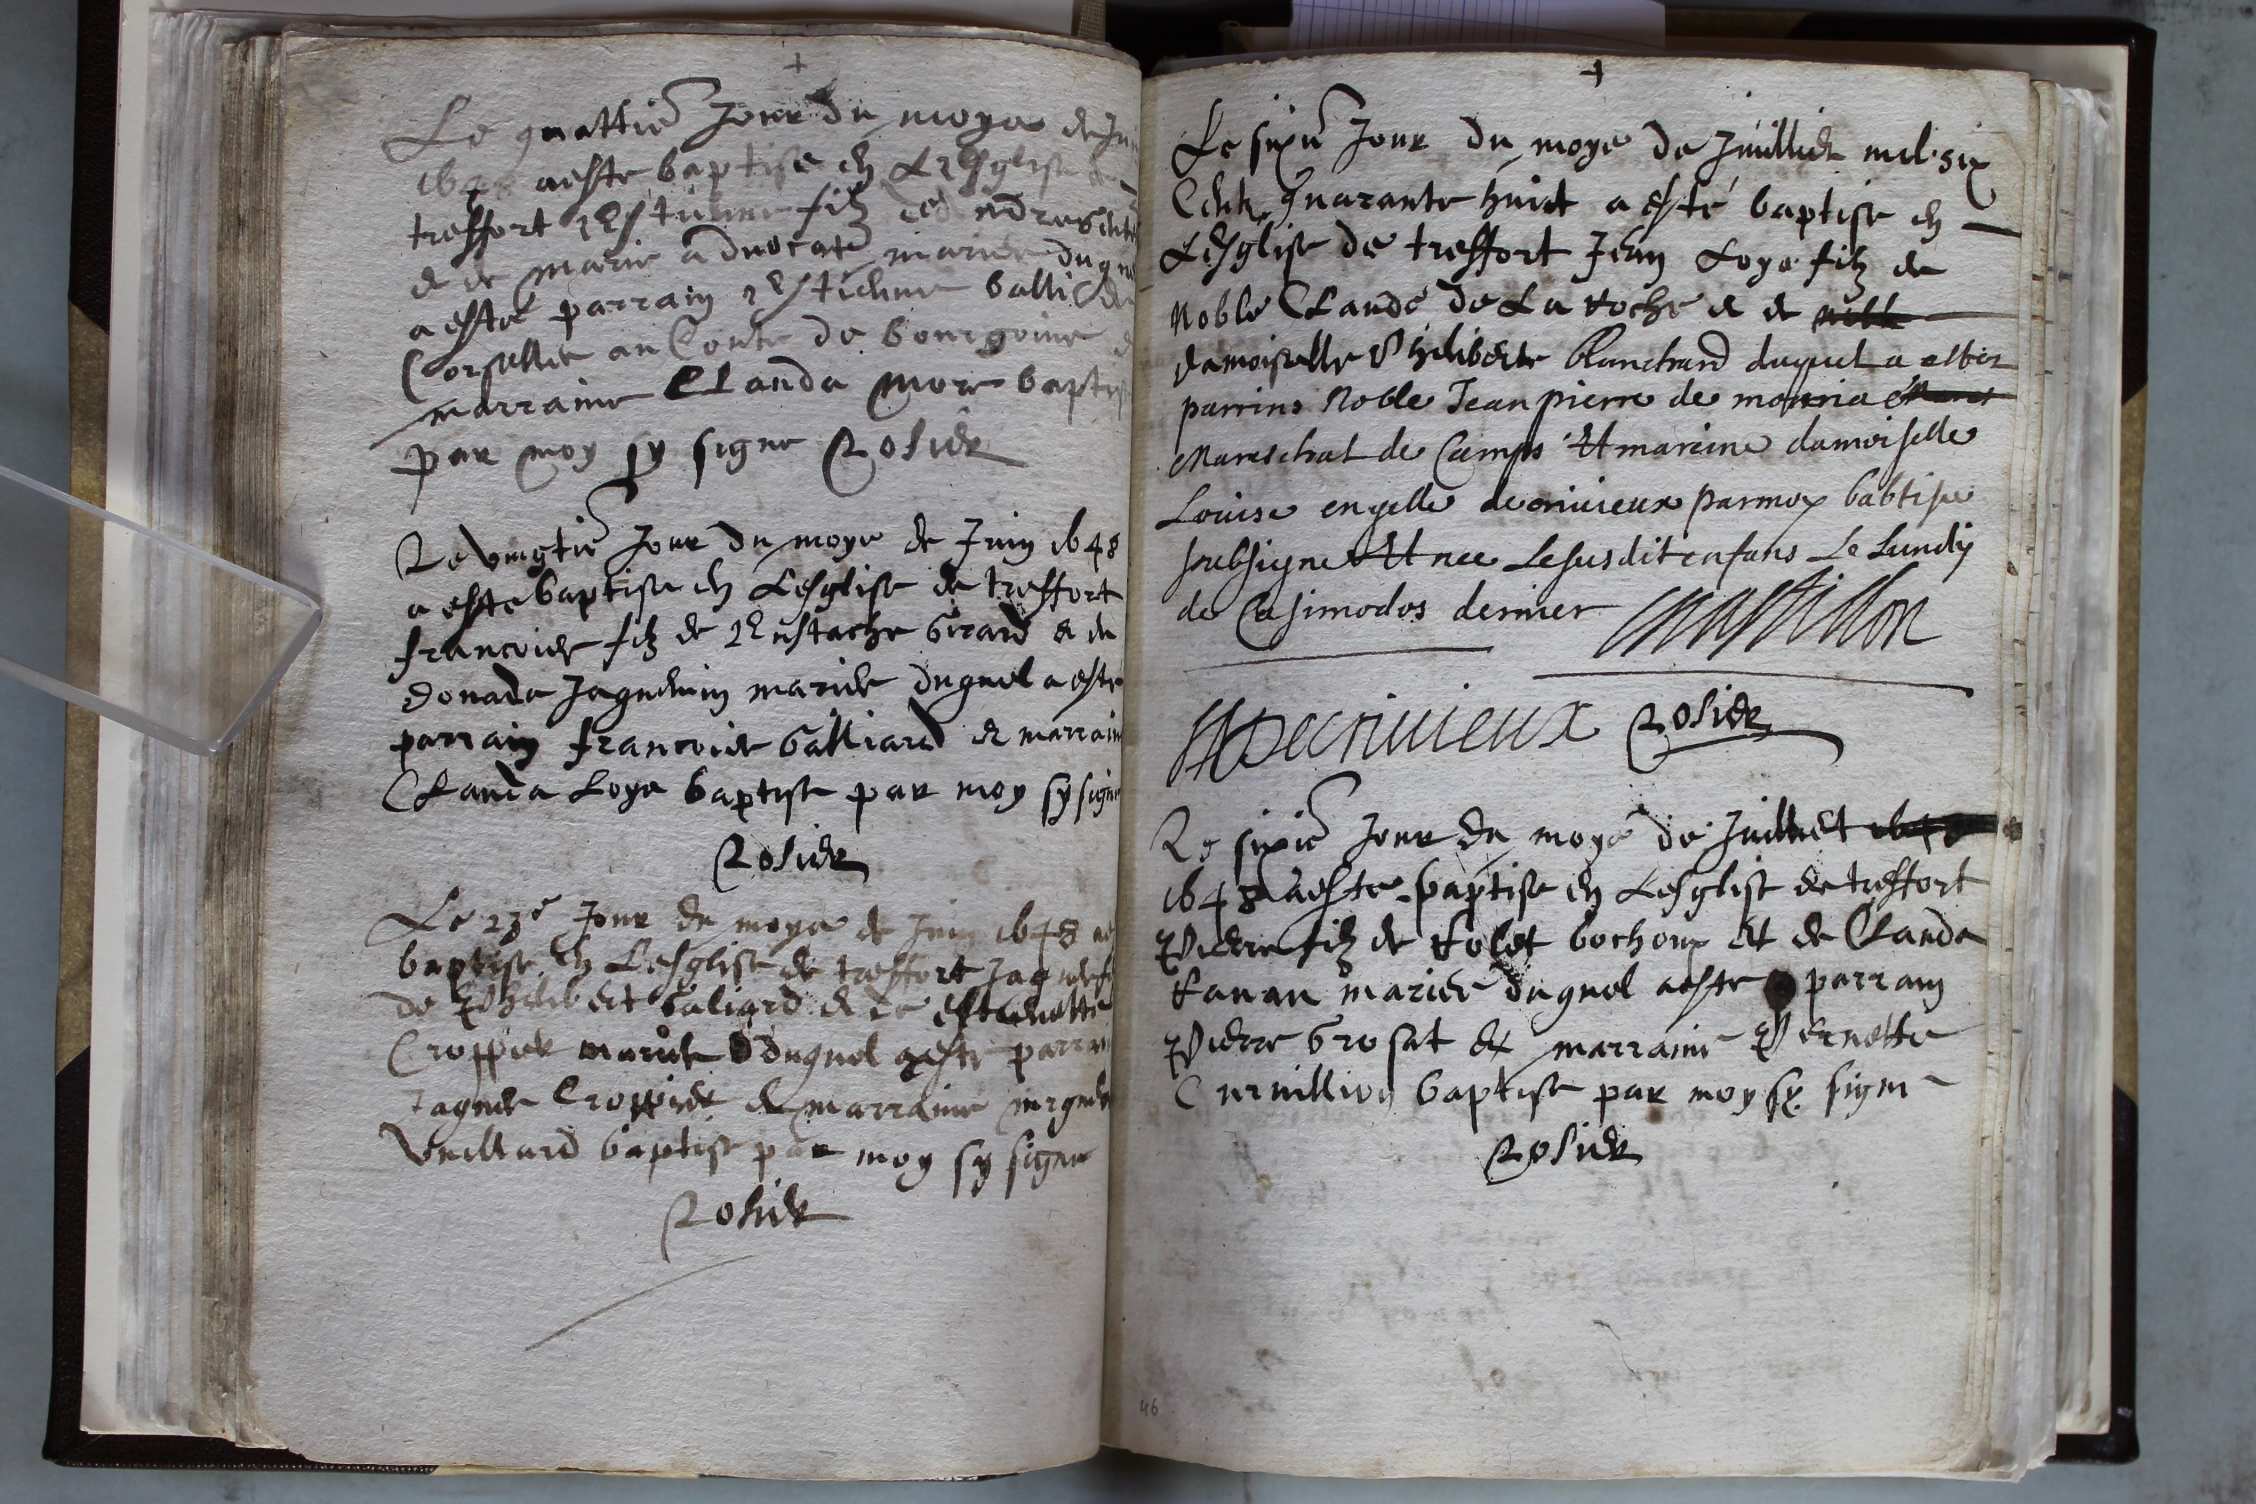 +
Le quattie Jour du moys de Jui
1648 a este baptise en L'esglise de
treffort Estienne filz de
& de Marie advocate mariés duquel
a esté parrain Estienne balli de
Corsellie au Conte de bourgoine &
marraine Clauda More baptise
par moy sy signe Rosier
Le vingtie Jour du moys de Juin 1648
a este baptise en Lesglise de treffort
francois filz de Eustache Girard & de
donada Jaquemin mariés duquel a esté
parrain francois Galliard & marraine
Clauda Loys baptise par moy sy signe
Rosier
Le 23e Jour du moys de Juin 1648 a
baptise en Lesglise de treffort Jaques
de Philibert Galiard & de estienette
Croppier mariés duquel a esté parrain
Jaques Croppier & marraine
Vuilliard baptise par moy sy signe
Rosier
+
Le sixie Jour du moys de Juillet mil six
Cents quarante huict a esté baptise en
Lesglise de treffort Jean Loys filz de
Noble Claude de La Roche & de
damoiselle Philiberte Blanchard duquel a ester
parrins Noble Jean pierre de mornia
Mareschal de Camps Et mareine damoiselle
Louise engelle decrivieux par moy babtise
soubsigne Et nee Le susdit enfans Le Lundy
de Casimodos dernier Chastillon
Decrivieux Rosier
Le sixie Jour du moys de Juillet 1648
1648 a este baptise en Lesglise de treffort
Pierre filz de Rolet bochoux et de Clauda
Ravan mariés duquel a este parrain
Pierre Grosat & marraine Pernette
Curnillion baptise par moy sy signe
Rosier
46